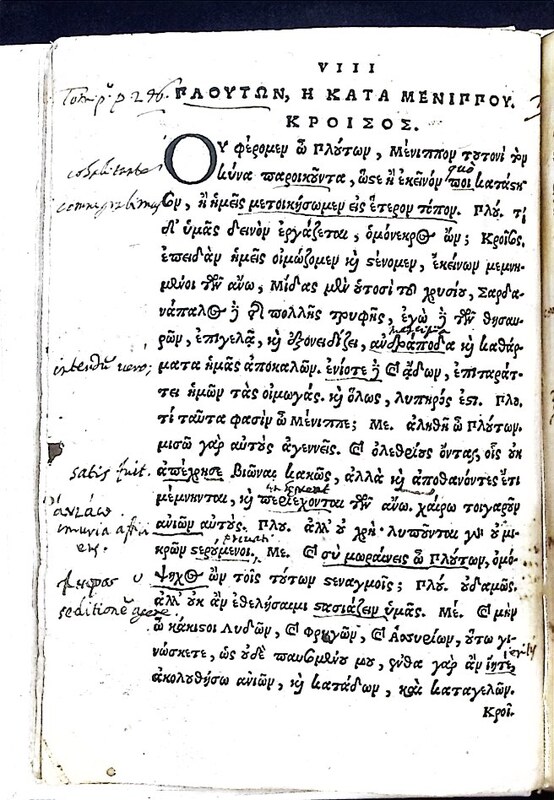 VIII
ΠΛΟΥΤΩΝ, Η ΚΑΤΑ ΜΕΝΙΠΠΟΥ.
ΚΡΟΙΣΟΣ.
Οὐ φέρομεν ὦ Πλούτων, Μένιππον τουτονὶ τὸν
κύνα παροικοῦντα, ὥστε ἢ ἐκεῖνόν ποι κατάστη
σον, ἢ ἡμεῖς μετοικήσωμεν εἰς ἕτερον τόπον. Πλού. τί
δ' ὑμᾶς δεινὸν ἐργάζεται, ὁμόνεκρος ὤν; Κροῖσος.
ἐπειδὰν ἡμεῖς οἰμώζομεν καὶ στένομεν, ἐκείνων μεμνη-
μένοι τῶν ἄνω, Μίδας μὲν οὑτοσὶ τοῦ χρυσίου, Σαρδα-
νάπαλος δὲ τῆς πολλῆς τρυφῆς, ἐγὼ δὲ τῶν θησαυ-
ρῶν, ἐπιγελᾷ, καὶ ἐξονειδίζει, ἀνδράποδα καὶ καθάρ-
ματα ἡμᾶς ἀποκαλῶν. ἐνίοτε δὲ καὶ ᾄδων, ἐπιταράτ-
τει ἡμῶν τὰς οἰμωγάς. καὶ ὅλως, λυπηρός ἐστι. Πλού.
τί ταῦτα φασὶν ὦ Μένιππε; Με. ἀληθῆ ὦ Πλούτων.
μισῶ γὰρ αὐτοὺς ἀγεννεῖς. καὶ ὀλεθρίους ὄντας, οἷς οὐκ
ἀπέχρησε βιῶναι κακῶς, ἀλλὰ καὶ ἀποθανόντες ἔτι
μέμνηνται, καὶ περιέχονται τῶν ἄνω. χαίρω τοιγαροῦν
ἀνιῶν αὐτούς. Πλού. ἀλλ' οὐ χρή· λυποῦνται γὰρ οὐ μι-
κρῶν στερούμενοι. Με. καὶ σὺ μωραίνεις ὦ Πλούτων, ὁμό-
ψηφος ὢν τοῖς τούτων στεναγμοῖς; Πλού. οὐδαμῶς.
ἀλλ' οὐκ ἂν ἐθελήσαιμι στασιάζειν ὑμᾶς. Με. καὶ μὴν
ὦ κάκιστοι Λυδῶν, καὶ Φρυγῶν, καὶ Ἀσσυρίων, οὕτω γι-
νώσκετε, ὡς οὐδὲ παυσομένου μου, ἔνθα γὰρ ἂν ἴητε,
ἀκολουθήσω ἀνιῶν, καὶ κατᾴδων, καὶ καταγελῶν.
Κροῖ.
quò
intendũ vero;
satis fuit.
ἀνιάω
seditionẽ agere